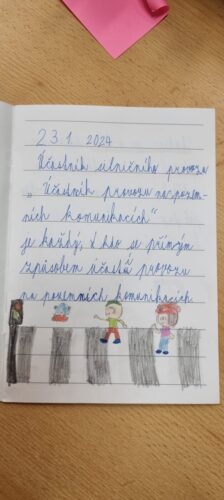 23. 1. 2024
Účastník silničního provozu
„Účastník provozu na pozem-
ních komunikacích“
je každý, kdo se přímým
způsobem účastní provozu
na pozemních komunikacích